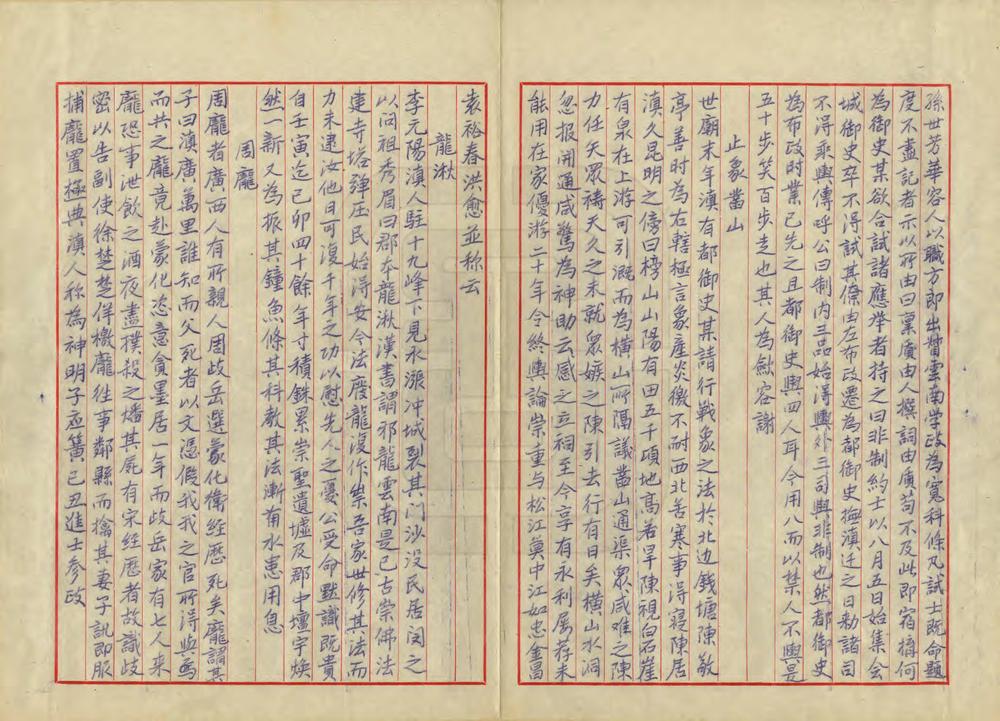 孫世芳華容人以職方郎出督雲南学政為寬科條凡試士既命題
度不盡記者示以所由曰稟質由人撰詞由質苟不及此即宿搆何
為御史某欲合試諸應举者持之曰非制約士以八月五日始集会
城御史卒不得試其僚由左布政遷為都御史撫滇迁之日勅諸司
不得乘輿傳呼公曰制内三品始得輿外三司輿非制也然都御史
為布政時業已先之且都御史輿四人耳今用八而以禁人不輿是
五十步笑百步走也其人為歛容謝
止象凿山
世廟末年滇有都御史某請行戰象之法於北边錢塘陳敬
亭善时為右轄極言象產炎徼不耐西北苦寒事得寢陳居
滇久昆明之傍曰榜山山陽有田五千項地高若旱陳視白石崖
有泉在上游可引溉而為橫山所隔議凿山通渠眾咸难之陳
力任矢眾禱天久之未就眾嫉之陳引去行有日矣橫山水洞
忽报開通咸驚為神助云感之立祠至今享有永利屢荐未
能用在家優游二十年令終輿論崇重与松江莫中江如忠崑
袁裕春洪愈並称云
龍湫
李元陽滇人駐十九峰下見水漲冲城裂其门沙没民居间之
以问祖秀眉曰郡本龍湫漢書謂邪龍雲南是已古崇佛法
建寺塔弹压民始得安今法廢龍復作祟吾家世修其法而
力未逮汝他日可復千年之功以慰先人之憂公受命默識既貴
自壬寅迄己卯四十餘年寸積銖累崇聖遺墟及郡中壇宇煥
然一新又為振其鐘魚條其科教其法漸甯水患用息
周龐
周龐者廣西人有所親人周歧岳選蒙化衛經歷死矣龐謂其
子曰滇廣萬里誰知而父死者以文憑假我我之官所得與爲
而共之龐竟赴蒙化恣意貪墨居一年而歧岳家有七人來
龐恐事泄飲之酒夜盡撲殺之燔其屍有宋經歷者故識歧
密以告副使徐楚楚佯檄龐往事鄰縣而擒其妻子訊即服
捕龐置極典滇人称為神明子应簧己丑進士參政